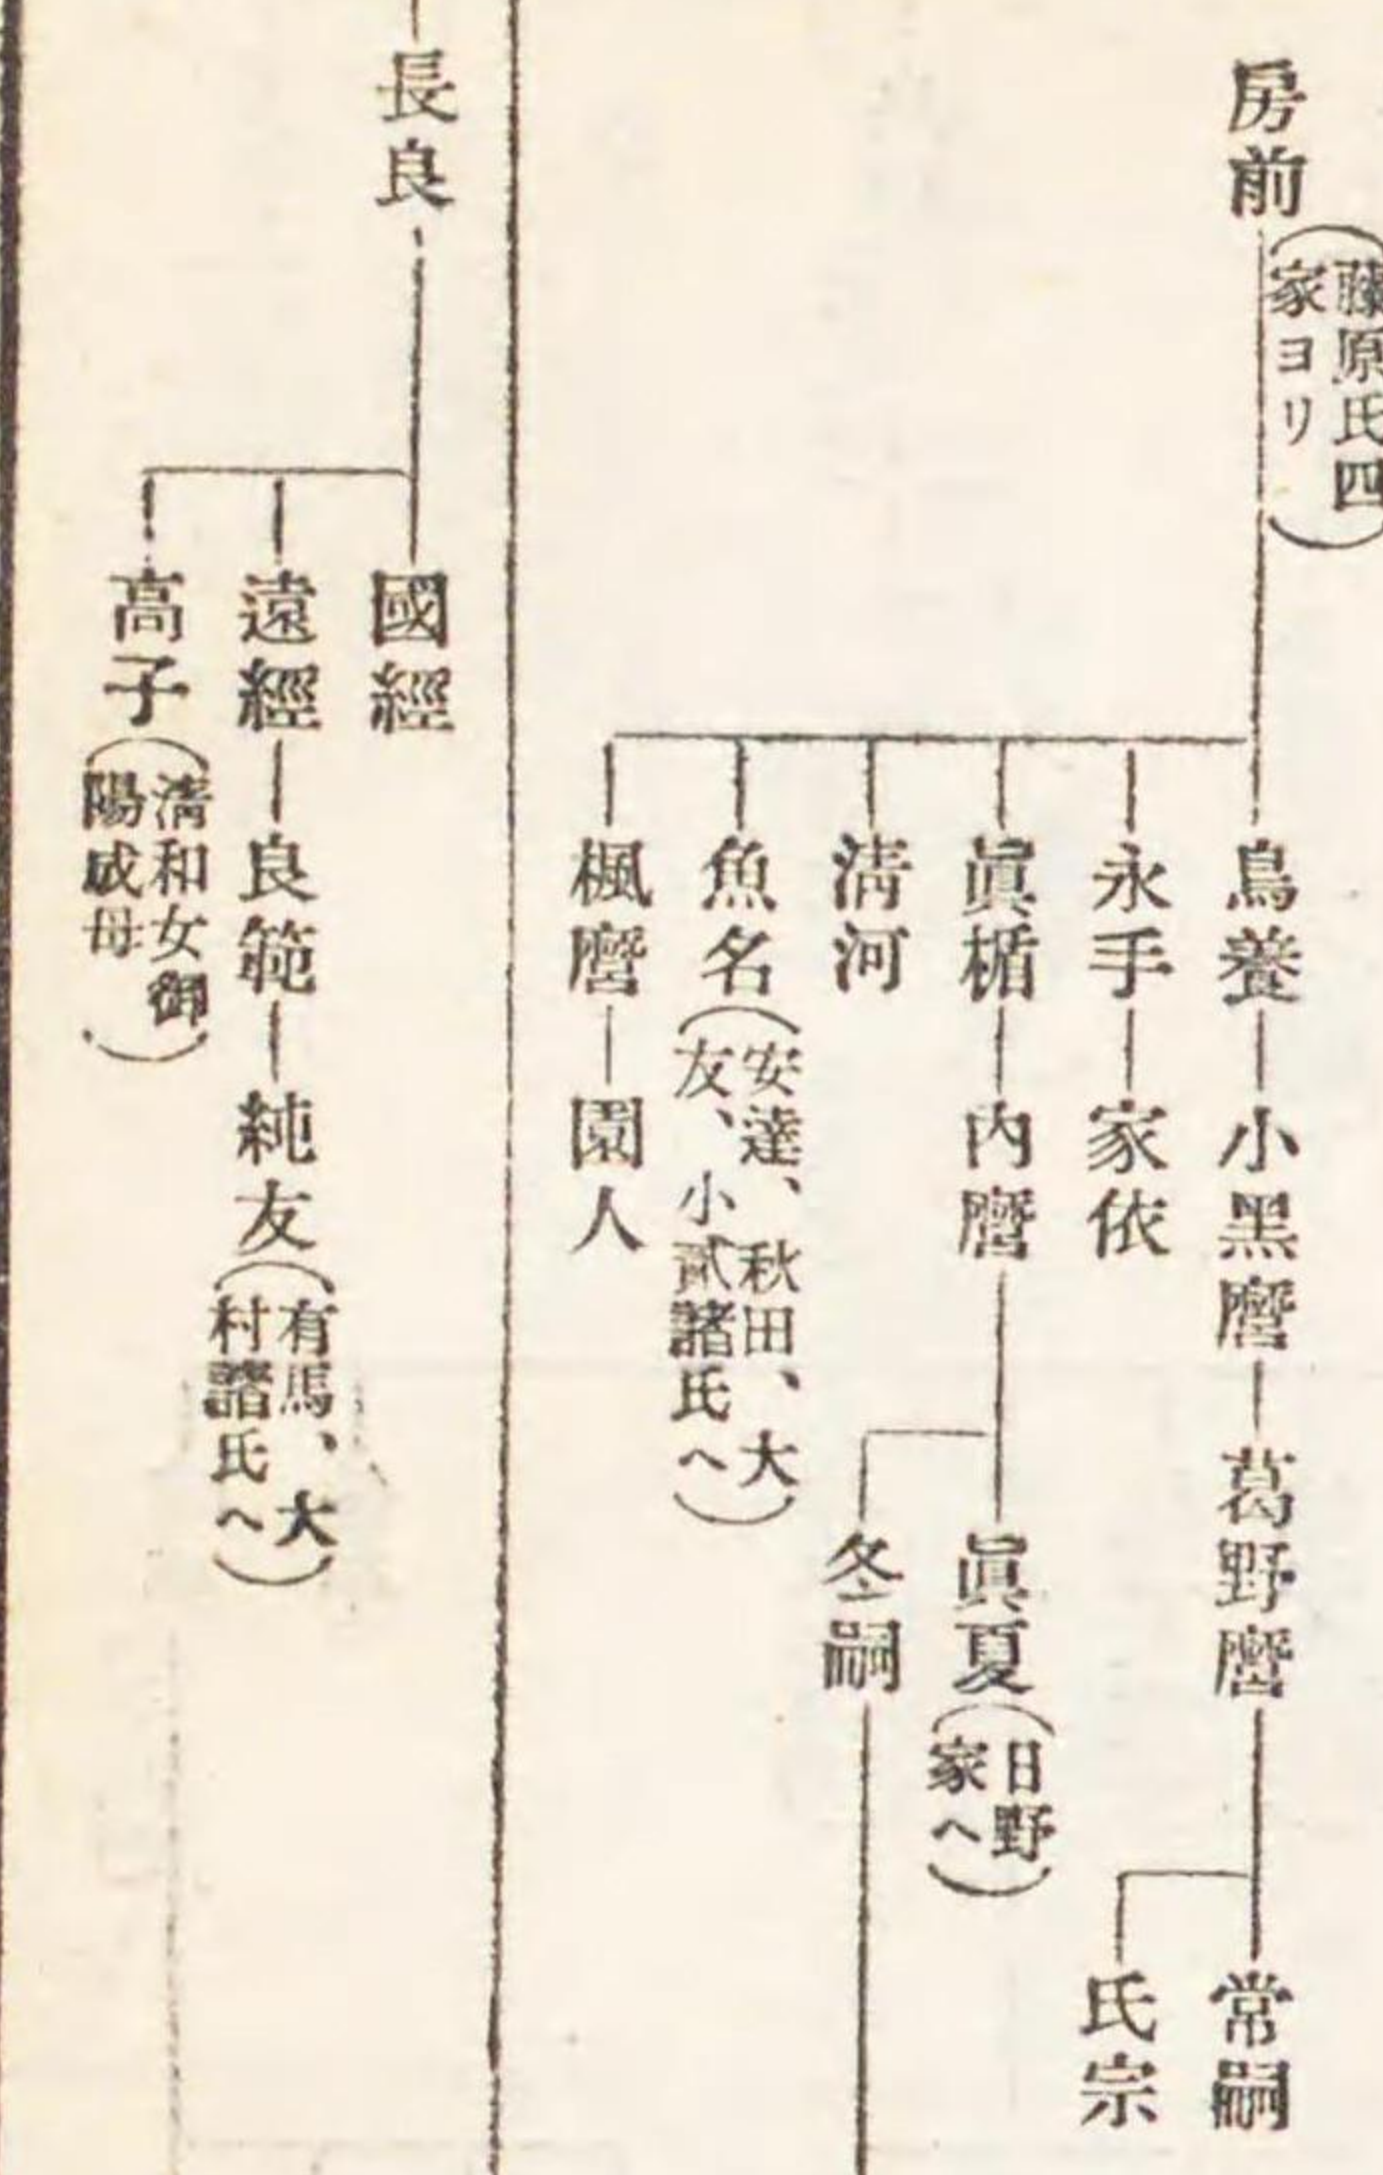 房前
藤原氏四
家ヨリ
鳥養
小黑麿
葛野麿
常嗣
氏宗
永手
家依
眞楯
内麿
眞夏
日野
家へ
冬嗣
淸河
魚名
安達、秋田、大
友、小貳諸氏へ
楓麿
園人
長良
國經
遠經
良範
純友
有馬、大
村諸氏へ
高子
淸和女御
陽成母